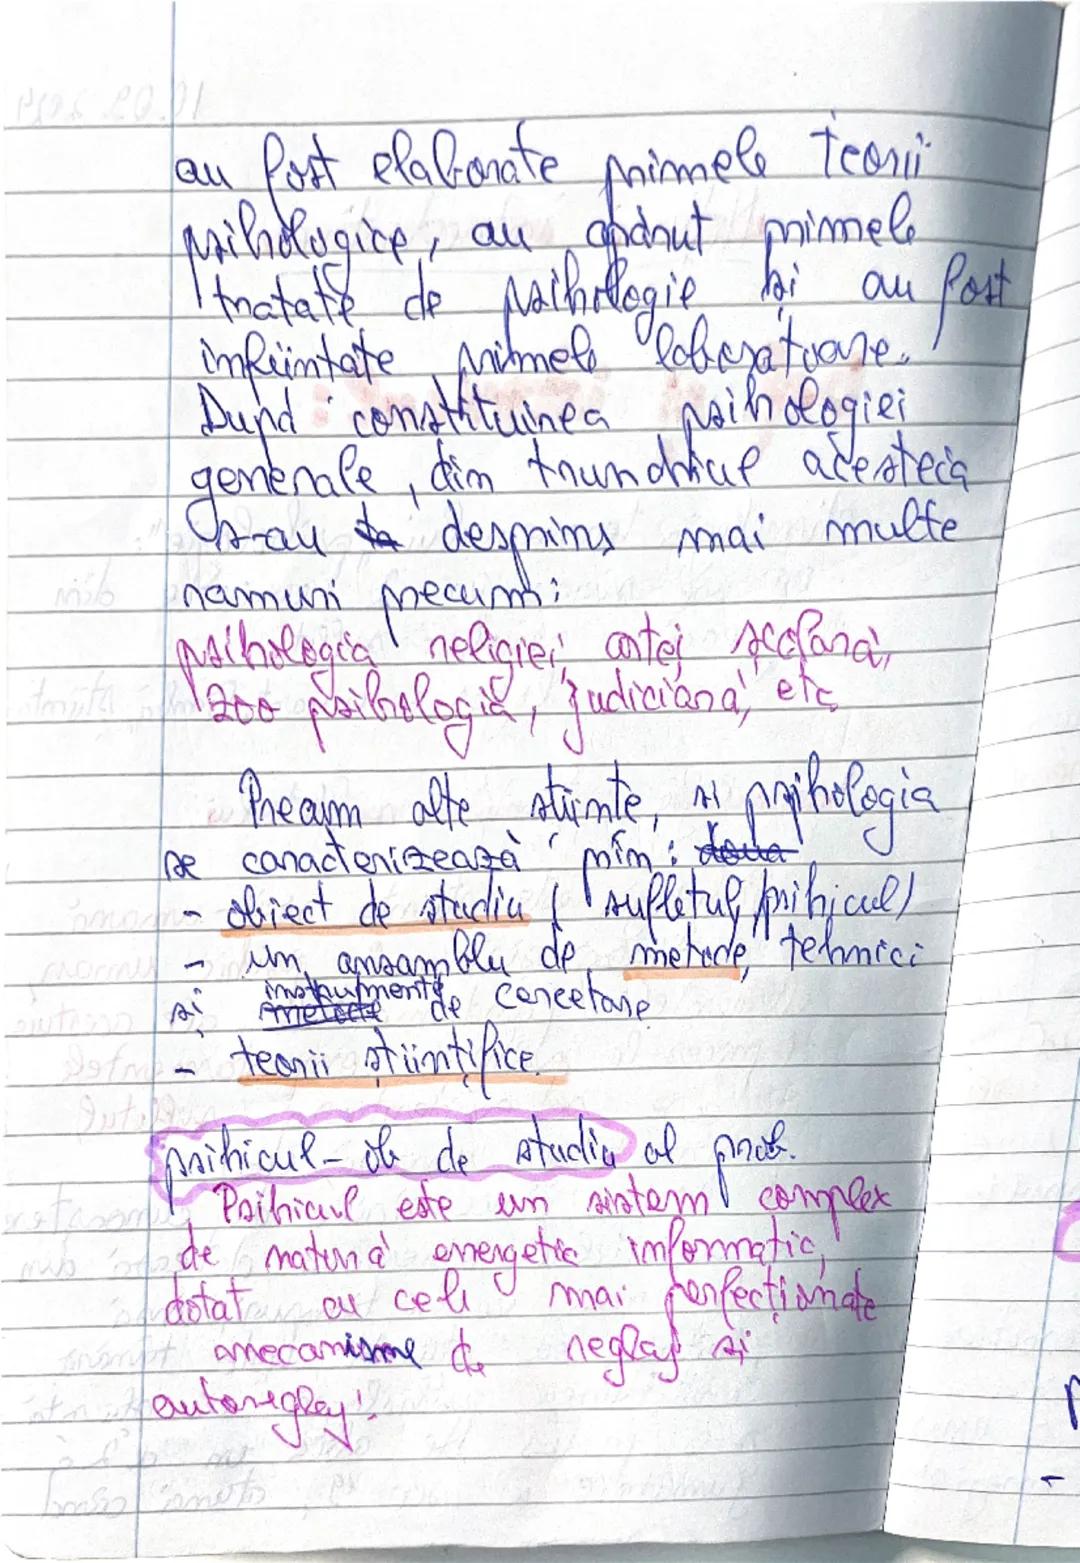 au fost elaborate primele teorii
psihologice, au apărut primele
tratate de psihologie și au fost
înființate primele laboratoare.
După constituirea psihologiei
generale, din trunchiul acesteia
s-au desprins mai multe
ramuri precum:
psihologia religiei, artei, școlară,
zoo psihologia, judiciară, etc
Precum alte științe, și psihologia
se caracterizează prin: două
- obiect de studiu (sufletul, psihicul)
- un ansamblu de metode, tehnici
și instrumente metode de cercetare
- teorii științifice.
psihicul - ob de studiu al
Psihicul este un sistem complex
de natură energetic informatic,
dotat cu cele mai perfecționate
mecanisme de reglaj și
autoreglaj.